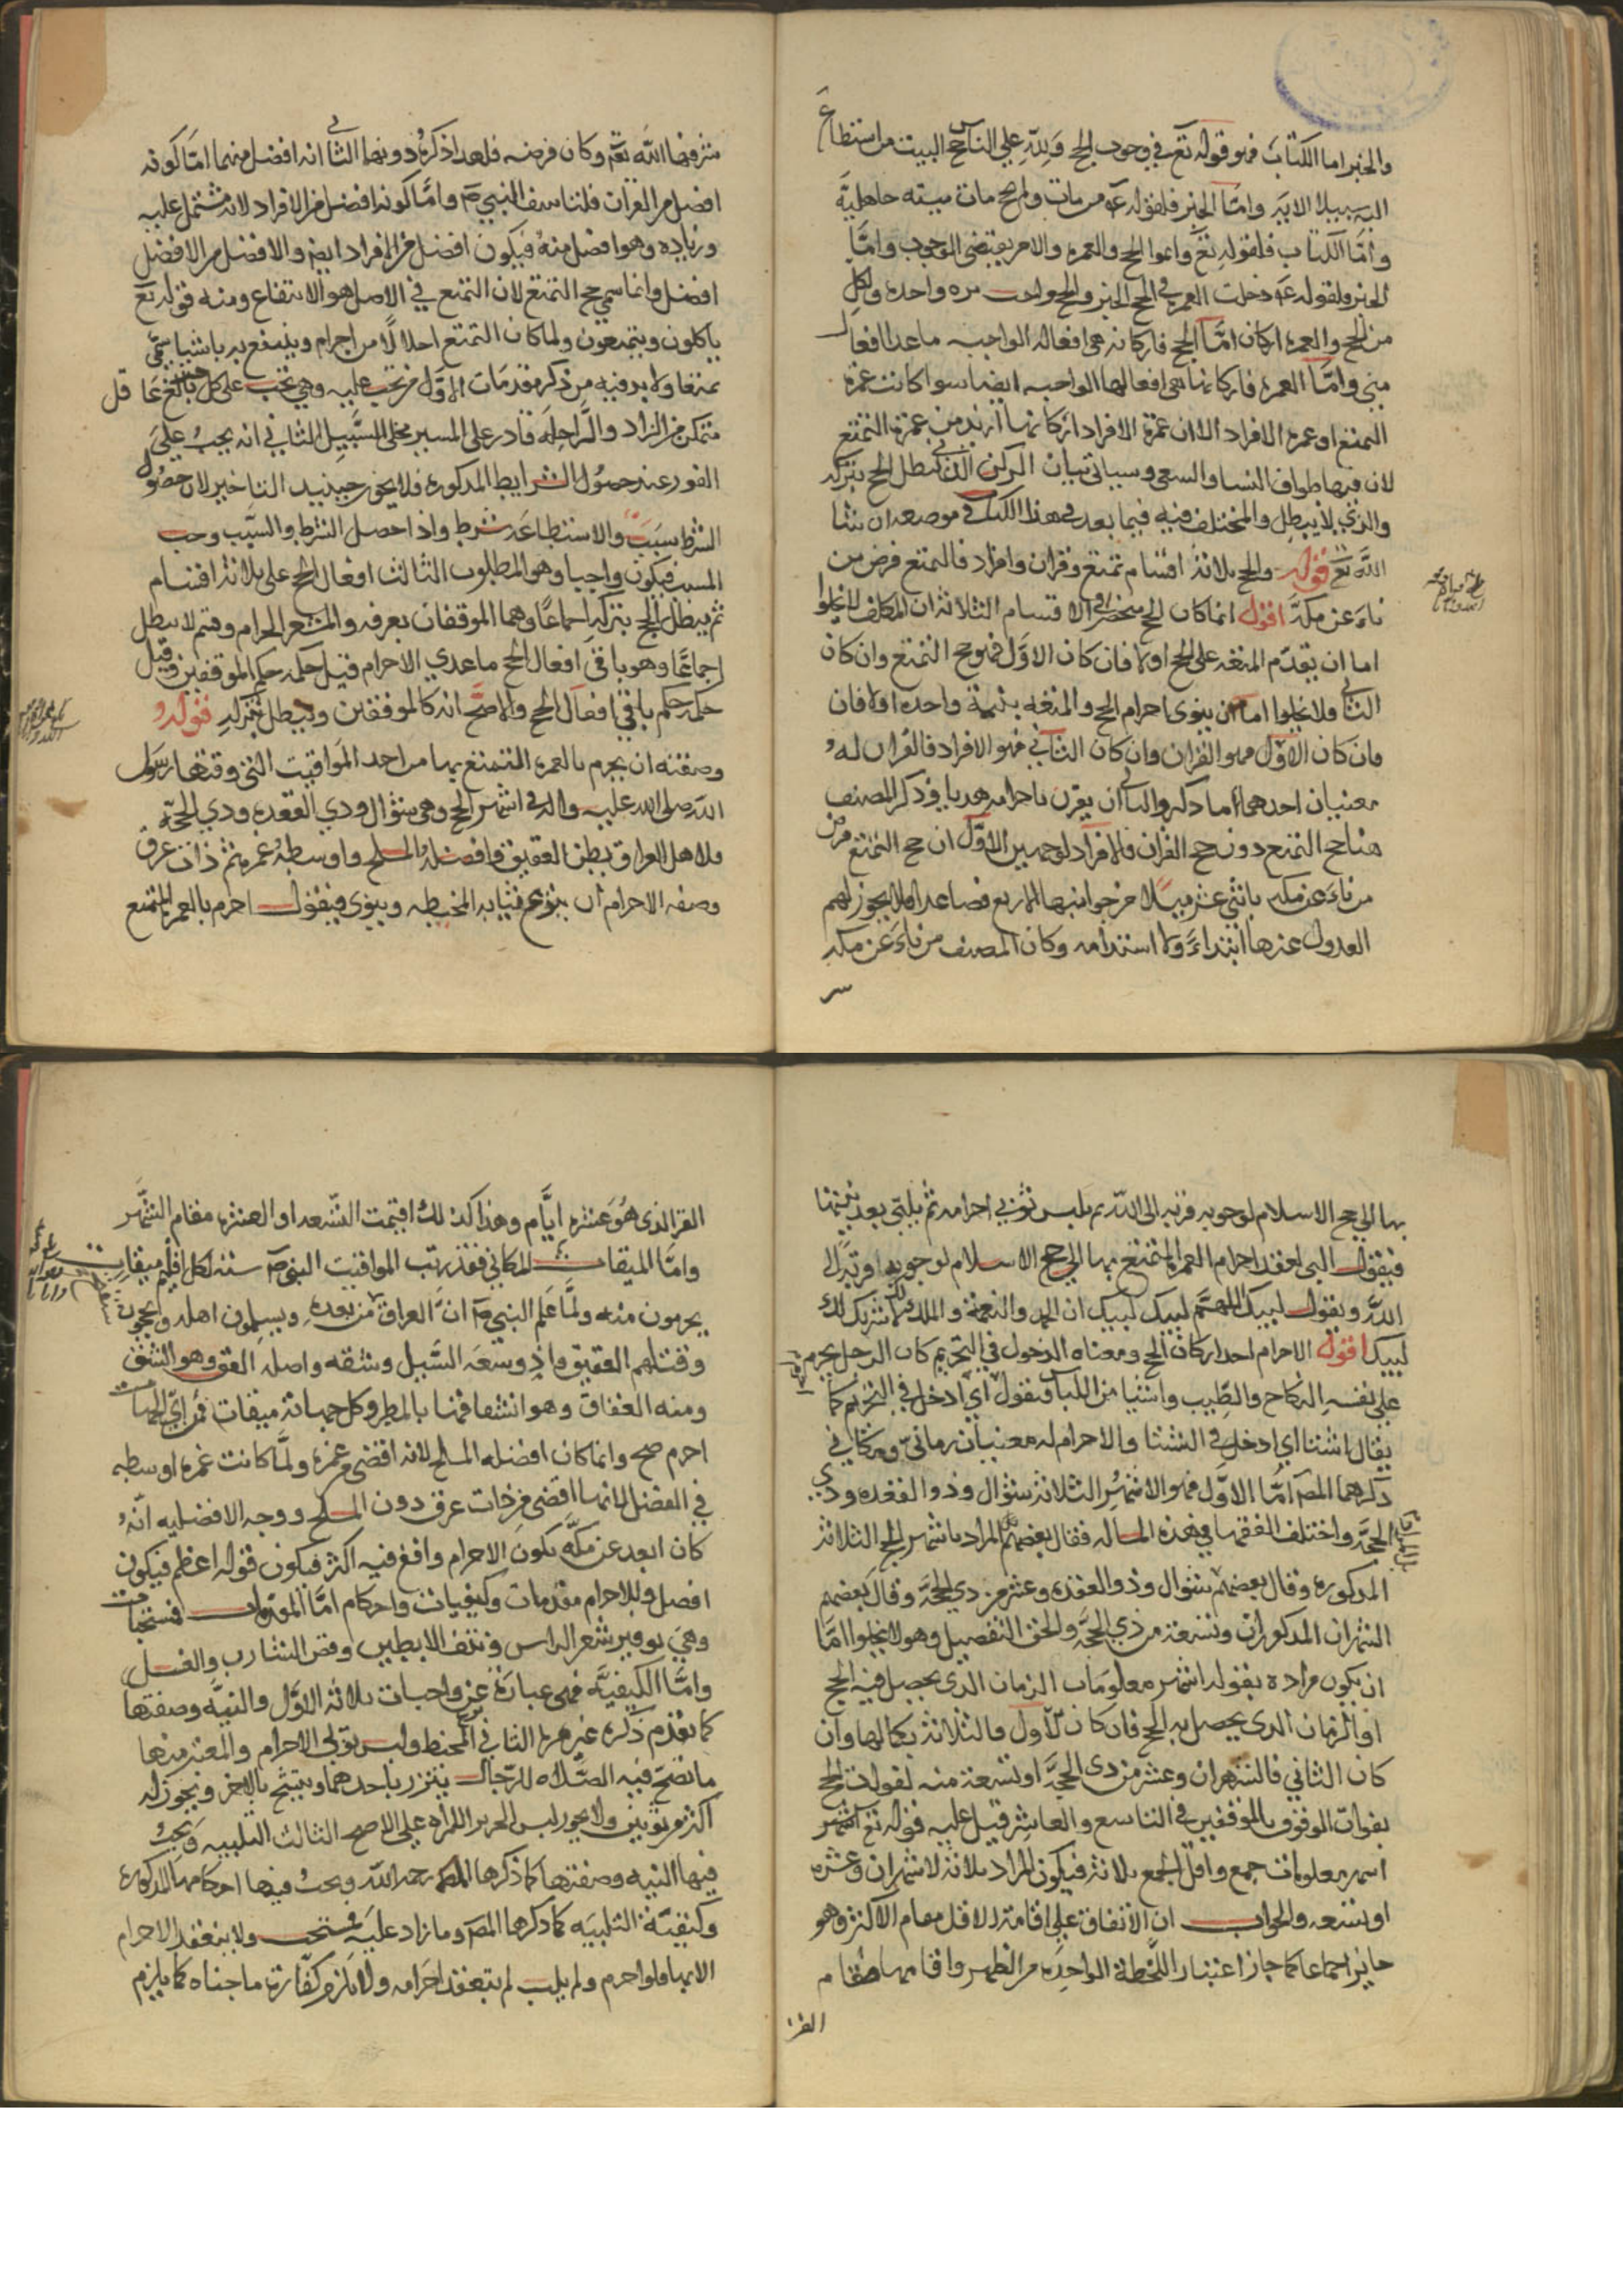 والخبر اما الكتاب فهو قوله تع في وجوب الحج ولله علي الناس حج البيت من استطاع
اليه سبيلا الايه واما الخبر فلقوله عه من مات ولم يحج مات ميته جاهلية
واما الكتاب فلقوله تع واتموا الحج والعمره والامر يقتضي الوجوب واما
الخبر ولقوله عه دخلت العمره في الحج الخبر والحج واجب مره واحده ولكل
من الحج والعمره اركان اما الحج فاركانه هي افعاله الواجبه ماعدا افعال
مني واما العمره فاركانها هي افعالها الواجبه ايضا سوا كانت عمرة
التمتع او عمرة الافراد الا ان عمرة الافراد اركانها ازيد من عمرة التمتع
لان فيها طواف النسا والسعي وسياتي بيان الركن الذي يبطل الحج بتركه
والذي لا يبطل والمختلف فيه فيما بعد في هذا الكتاب في موضعه ان شا
الله تع قوله والحج ثلاثة اقسام تمتع وقران وافراد فالتمتع فرض من
ناء عن مكة اقول انما كان الحج منحصرا في الاقسام الثلاثة ان المكلف لا يخلوا
اما ان يقدم المتعه على الحج اولا فان كان الاول فهو حج التمتع وان كان
الثاني فلا يخلوا اما ان ينوي احرام الحج والمتعه بنية واحده اولا فان
فان كان الاول فهو القران وان كان الثاني فهو الافراد فالقران له
معنيان احدهما ما ذكره والثاني ان يقرن باحرامه هديا وذكر المصنف
هنا حج التمتع دون حج القران والافراد لوجهين الاول ان حج التمتع فرض
من ناء عن مكه باثني عشر ميلا من جوانبها الاربع فصاعدا فلا يجوز لهم
العدول عنها ابتداء ولا استدامه وكان المصنف من ناء عن مكه
شرفها الله تع وكان فرضه فلهذا ذكره دونهما الثاني انه افضل منهما اما كونه
افضل من القران فلتاسف النبي ص واما كونه افضل من الافراد لانه مشتمل عليه
وزياده وهو افضل منه فيكون افضل من الافراد ايض والافضل من الافضل
افضل وانما سمي حج التمتع لان التمتع في الاصل هو الانتفاع ومنه قوله تع
ياكلون ويتمتعون ولما كان التمتع احلالا من احرام وينتفع به باشيا سمي
تمتعا ولابد فيه من ذكر مقدمات الاول من تجب عليه وهي تجب على كل بالغ عاقل
متمكن من الزاد والراحله قادر على المسير مخلي السبيل الثاني انه يجب علي
الفور عند حصول الشرايط المذكوره فلا يجوز حينيذ التاخير لان حصول
الشرط سبب والاستطاعه شرط واذا حصل الشرط والسبب وجب
المسبب فيكون واجبا وهو المطلوب الثالث افعال الحج على ثلاثة اقسام
ثم يبطل الحج بتركه اجماعا وهما الموقفان بعرفه والمشعر الحرام وقسم لا يبطل
اجماعا وهو باقي افعال الحج ماعدي الاحرام قيل حكمه حكم الموقفين وقيل
حكمه حكم باقي افعال الحج والاصح انه كالموقفين ويبطل بتركه قوله
وصفته ان يحرم بالعمره المتمتع بها من احد المواقيت التي وقتها رسول
الله صلى الله عليه واله في اشهر الحج وهي شوال وذي القعده وذي الحجة
فلاهل العراق بطن العقيق وافضله المسلح واوسطه غمره ثم ذات عرق
وصفه الاحرام ان ينزع ثيابه المخيطه وينوي فيقول احرم بالعمره المتمتع
بها الي حج الاسلام لوجوبه قربه الى الله ثم يلبس ثوبي احرامه ثم يلبي بعد نيتها
فيقول البي لعقد احرام العمره المتمتع بها الي حج الاسلام لوجوبه قربة الى
الله ويقول لبيك اللهم لبيك لبيك ان الحمد والنعمة والملك لك لا شريك لك
لبيك اقول الاحرام احد اركان الحج ومعناه الدخول في التحريم كان الرجل يحرم
علي نفسه النكاح والطيب واشيا من اللباس فنقول اي ادخل في التحريم كما
يقال اشتا اي ادخل في الشتا والاحرام له معنيان زماني ومكاني
ذكرهما المص اما الاول فهو الاشهر الثلاثه شوال وذو القعده وذي
الحجه واختلف الفقها في هذه المساله فقال بعضهم المراد باشهر الحج الثلاثة
المذكوره وقال بعضهم شوال وذو القعده وعشر من ذي الحجه وقال بعضهم
الشهران المذكوران وتسعة من ذي الحجه والحق التفصيل وهو لا يخلوا اما
ان يكون مراده بقوله اشهر معلومات الزمان الذي يحصل فيه الحج
او الزمان الذي يحصل به الحج فان كان الاول فالثلاثة بكمالها وان
كان الثاني فالشهران وعشر من ذي الحجه او تسعة منه لفوات الحج
بفوات الوقوف بالموقفين في التاسع والعاشر قيل عليه قوله تع اشهر
اشهر معلومات جمع واقل الجمع ثلاثة فيكون المراد ثلاثة لا شهران وعشره
او تسعه والجواب ان الاتفاق علي اقامة الاقل مقام الاكثر وهو
جايز اجماعا كما جاز اعتبار اللحظة الواحده من الظهر واقامها مقام
القرا
القر الذي هو عشره ايام وهذا كذلك اقيمت التسعه او العشره مقام الشهر
واما الميقات المكاني فقد رتب المواقيت النبي ص سته لكل اقليم ميقات
يحرمون منه ولما علم النبي ص ان العراق من بعده ويسلمون اهله ويحجون
وقت لهم العقيق واد وسعه السبيل وشقه واصله العق وهو الشق
ومنه العقاق وهو انشقاقها بالمطر وكل جهاته ميقات فمن اي الجهات
احرم صح وانما كان افضله المسلح لانه اقضي من غمره ولما كانت غمره اوسطه
في الفضل لانها اقضي من ذات عرق دون المسلح ووجه الافضليه انه
كان ابعد عن مكه يكون الاحرام واقع فيه اكثر فيكون قوله اعظم فيكون
افضل وللاحرام مقدمات وكيفيات واحكام اما المقدمات فمستحبات
وهي توفير شعر الراس ونتف الابطين وقص الشارب والغسل
واما الكيفيه فهي عبارة عن واجبات ثلاثة الاول والنيه وصفتها
كما تقدم ذكره غير مره الثاني المخيط ولبس ثوبي الاحرام والمعتبر منها
ما تصح فيه الصلاه للرجال يتزر باحدهما ويتشح بالاخر ويجوز له
اكثر من ثوبين ولا يجوز لبس الحرير للمراه علي الاصح الثالث التلبيه ويجب
فيها النيه وصفتها كما ذكرها المص رحمه الله ويجب فيها احكامها المذكوره
وكيفية التلبيه كما ذكرها المص وما زاد عليه مستحب ولا ينعقد الاحرام
الا بها فلو احرم ولم يلب لم ينعقد احرامه ولا يلزم كفارة ما جناه كما يلزم